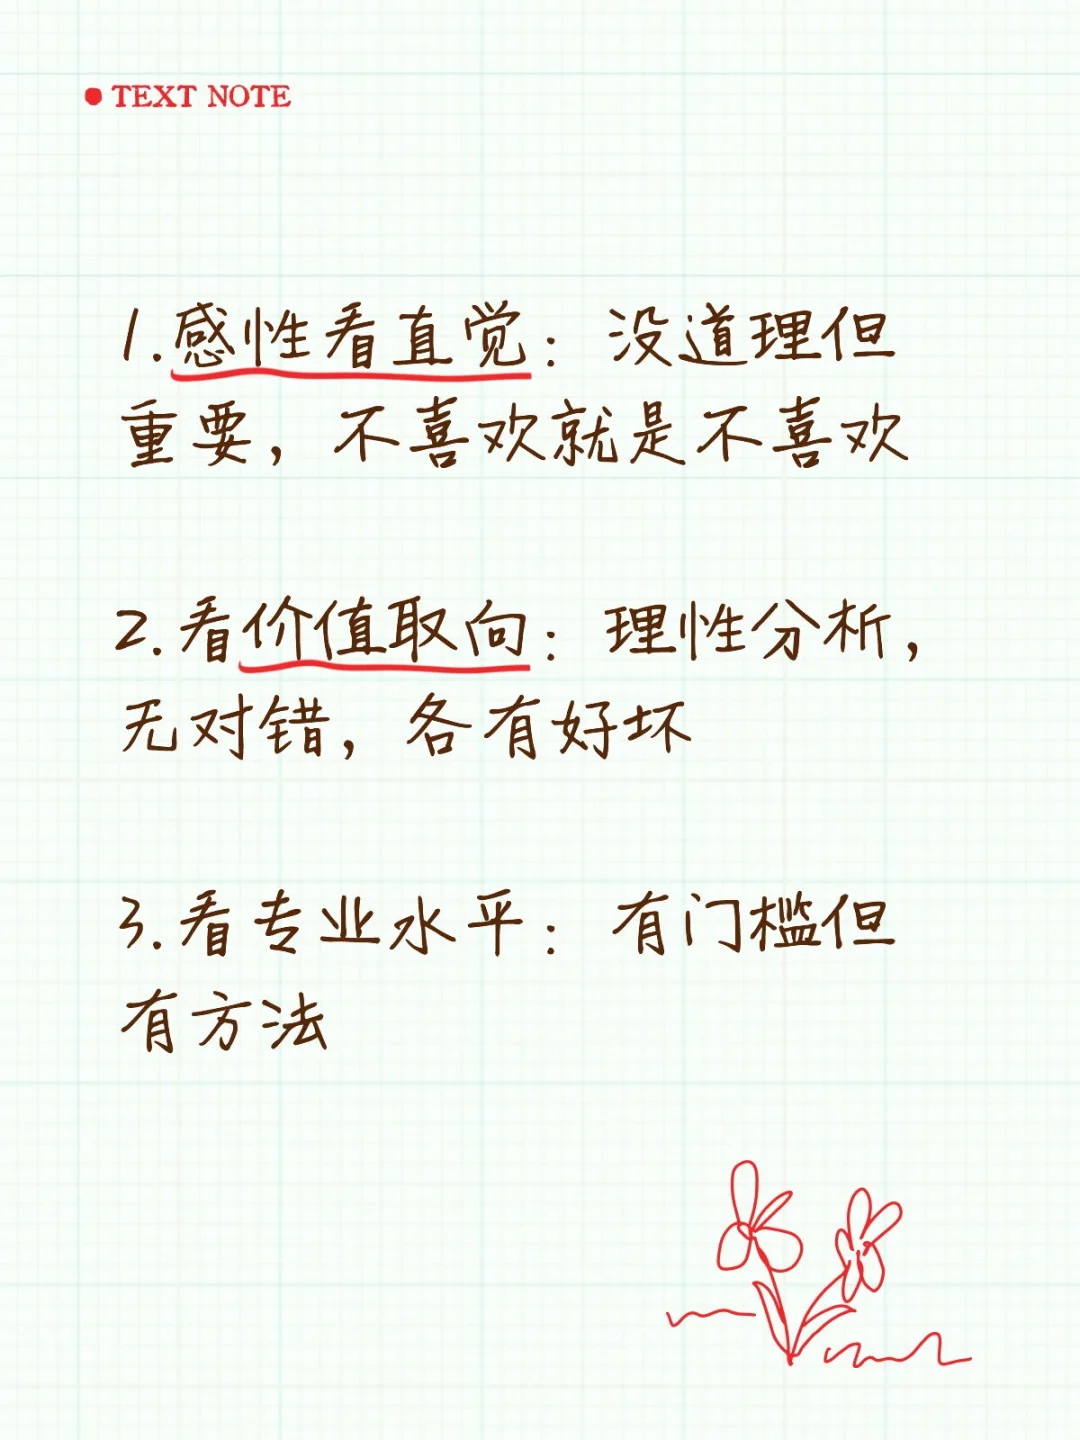 TEXT NOTE
1.感性看直觉：没道理但
重要，不喜欢就是不喜欢
2.看价值取向：理性分析，
无对错，各有好坏
3.看专业水平：有门槛但
有方法